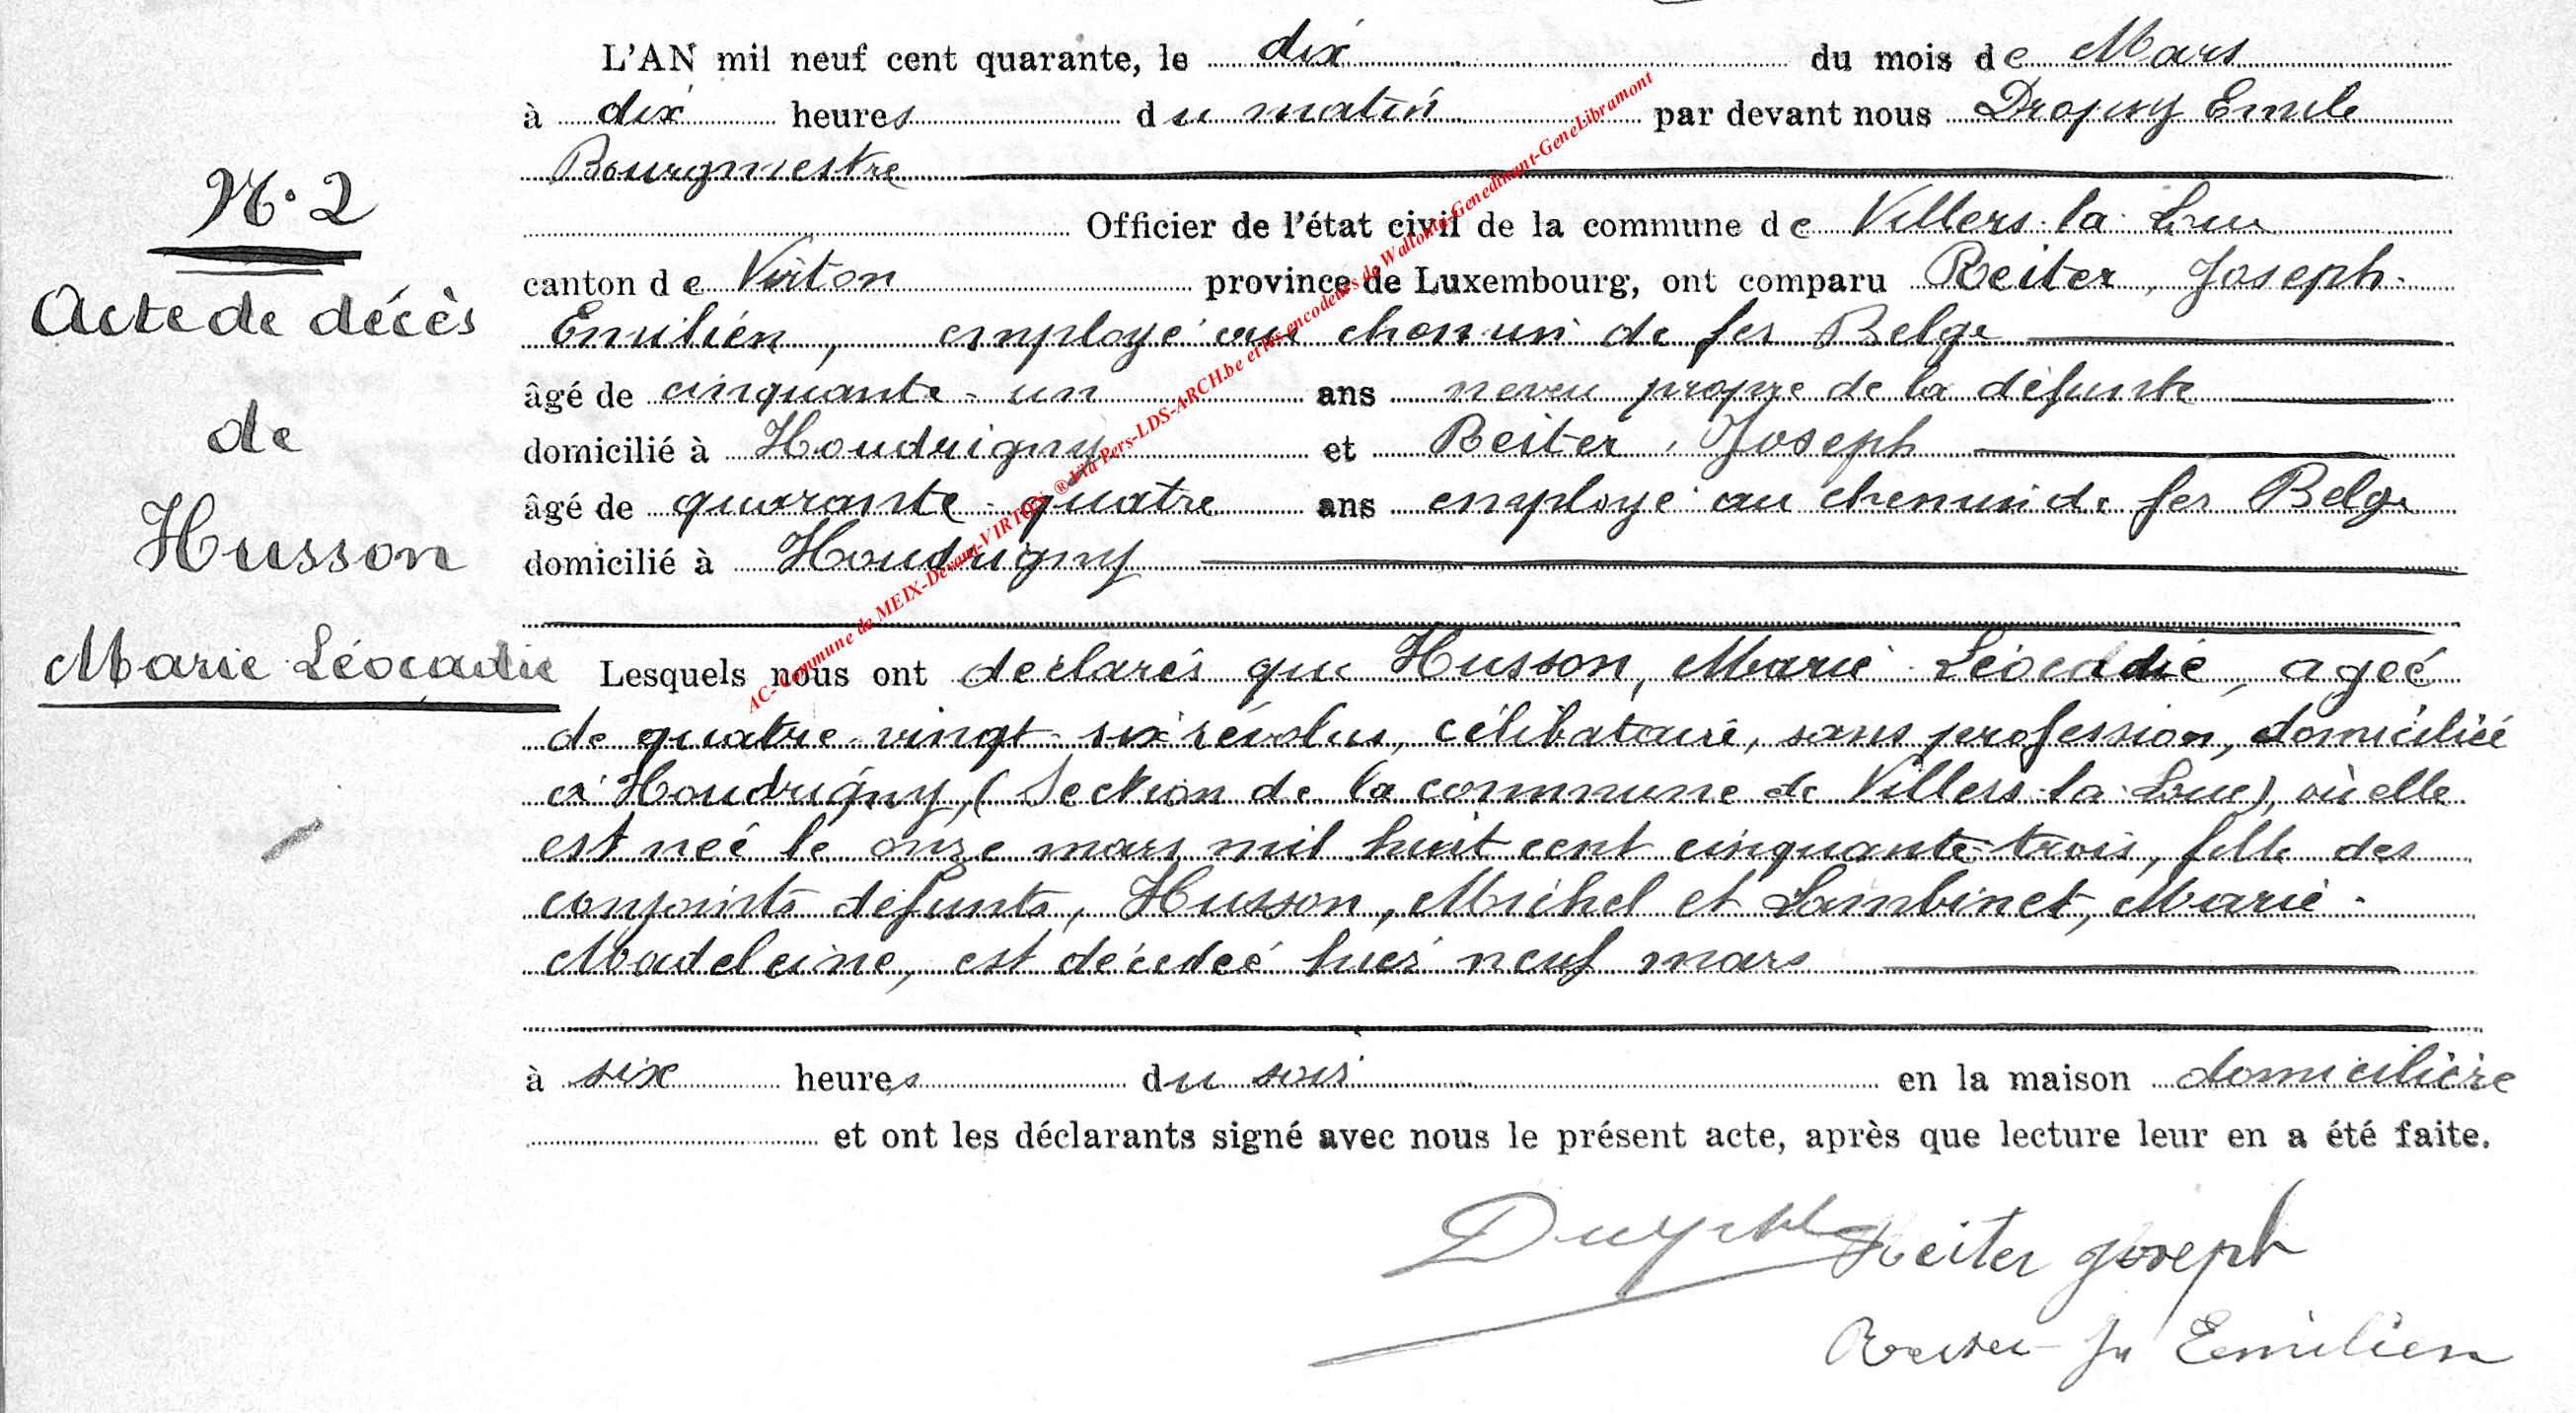 L'AN mil neuf cent quarante, le dix du mois de Mars
à dix heures du matin par devant nous Dropsy Emile
Bourgmestre
N. 2
Officier de l'état civil de la commune de Villers-la-Loue
canton de Virton province de Luxembourg, ont comparu Reiter, Joseph-
Acte de décès
Emilien, employé au chemin de fer Belge
âgé de cinquante-un ans neveu propre de la défunte
de
domicilié à Houdrigny et Reiter, Joseph
âgé de quarante-quatre ans employé au chemin de fer Belge
Husson
domicilié à Houdrigny
Marie Léocadie
Lesquels nous ont déclarés que Husson, Marie Léocadie, agée
de quatre-vingt-six révolus, célibataire, sans profession, domiciliée
à Houdrigny, (Section de la commune de Villers-la-Loue), où elle
est née le onze mars mil huit cent cinquante-trois, fille des
conjoints défunts, Husson, Michel et Lambinet, Marie-
Madeleine, est décédée hier neuf mars
à six heures du soir en la maison domicilière
et ont les déclarants signé avec nous le présent acte, après que lecture leur en a été faite.
Reiter Joseph
Reiter Jh Emilien
AC-Commune de MEIX-Devant-VIRTON ® Via Pers-LDS-ARCH.be et les encodeurs de Wallonia-Genedinant-GeneLibramont